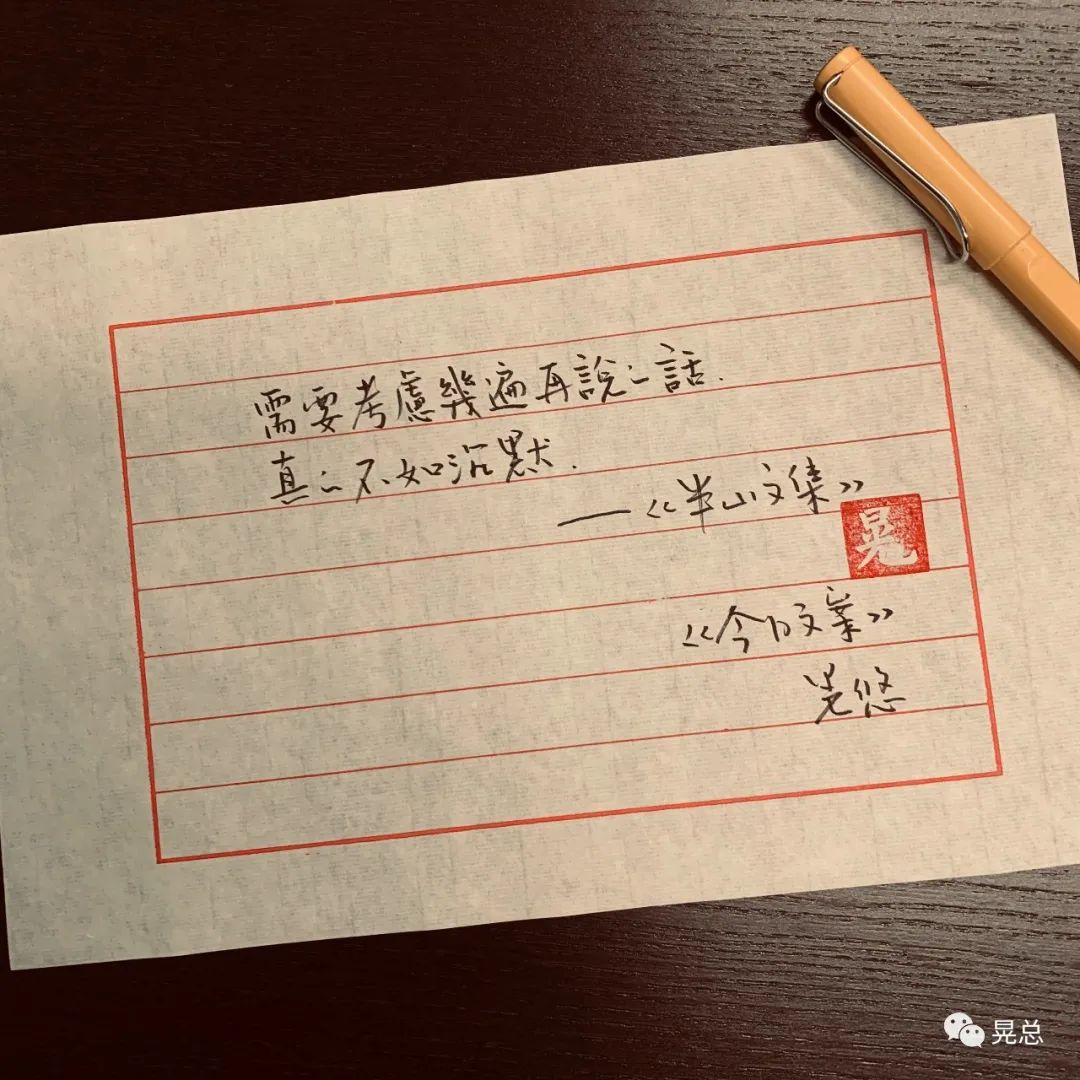 需要考慮幾遍再說的話.
真的不如沉默.
——《半山文集》
晃
《今日文案》
晃悠
晃总